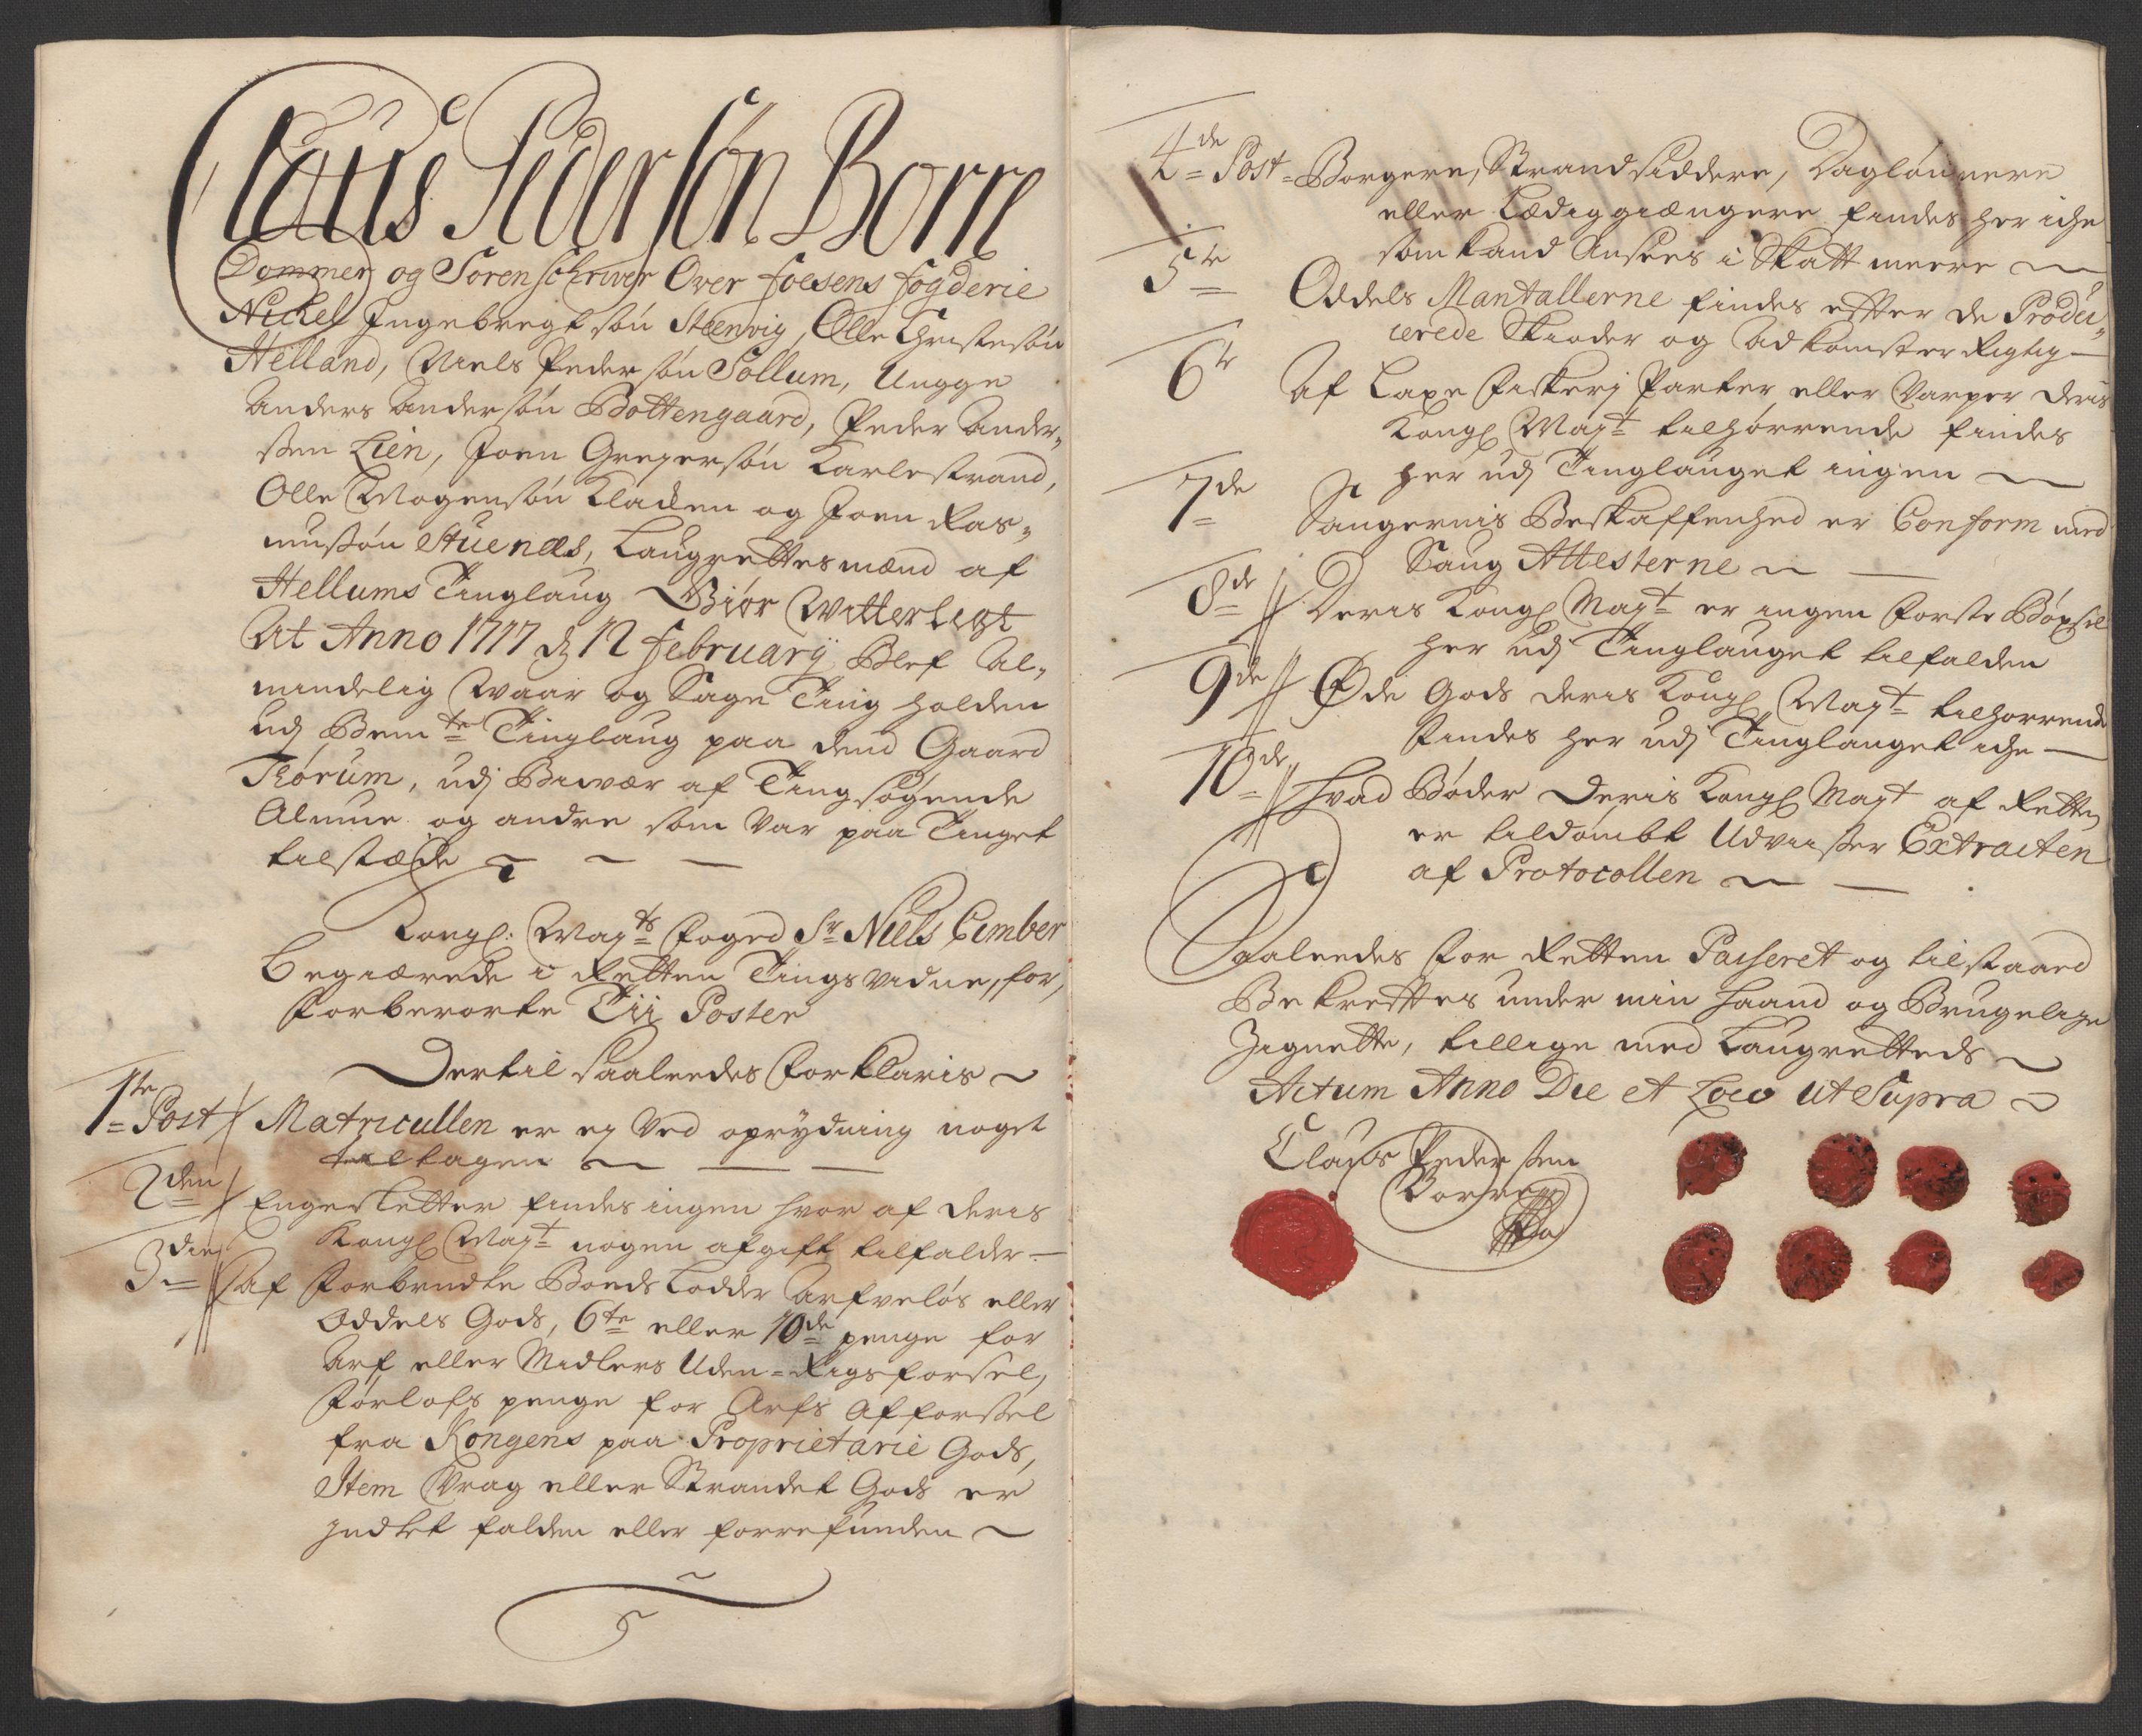 Claus Pedersøn Borre
Dommer og Sorenschriver Over foesens fogderie
Nickel Jngebregtsøn Steenvig, Olle Christensøn
Helland, Niels Pedersøn Sollum, Ungge
Anders Andersøn Bottengaard, Peder Ander„
ssen Lien, Joen Gregersøn Karlestrand,
Olle Mogensøn Kladen og Joen Ras„
mussøn Stuenæs, Laugrettesmænd af
Hellums Tinglaug Giør Witterligt
At Anno 1717 d 12 february Blef Al„
mindelig Waar og Sage Ting holden
udj Bemte Tinglaug paa dend Gaard
Rørum, udj Biwær af Tingsøgende
Almue og andre som var paa Tinget
tilstæde
Kongl: Mayts Foged Sr Niels Cimber
Begiærede i Retten Tingsvidne, for,
forberørte Tii Poster
Dertil saaleedes forklaris
1te Post Matricullen er ej ved oprydning noget
tiltagen
2den Engesletter findes ingen hvor af deris
Kongl Mayt nogen afgift tilfalder
3die Af forbrudte Bonds Lodder Arfveløs eller
Oddels Gods, 6te eller 10de penge for
Arf eller Midlers Uden-Rigsførsel,
Førlofs penge for Arfs Afførsel
fra Kongens paa Proprietarie Gods,
Item Vrag eller Strandet Gods er
Indtet falden eller forrefunden
4de Post Borgere, Strandsiddere, DagløNnere
eller Lædiggiængere findes her iche
som kand Ansees i Skatt meere
5te Oddels Mantallerne findes efter de Produ„
cerede Skiøder og Adkomster Rigtig
6te Af Laxe Fiskerj Parker eller Varper deris
Kongl Mayt tilhørrende findes
her udj Tinglauget ingen
7de Saugernis Beskaffenhed er Conform med
Saug Attesterne
8de Deris Kongl Mayt er ingen Første Bøxsel
her udj Tinglauget tilfalden
9de Øde Gods deris Kongl Mayt tilhørrende
findes her udj Tinglauget iche
10de Hvad Bøder Deris Kongl Mayt af Retten
er tildømbt Udviisser Extracten
af Protocollen
Saaleedes for Retten Passeret og tilstaaed
Bekreftes under min Haand og Brugelige
Zignette, tillige med Laugretteds
Actum Anno Die et Loco ut Supra
Claus Pederssen
Borre